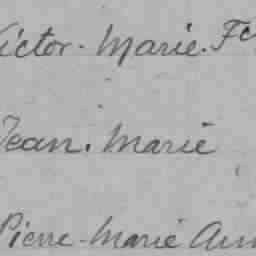 Victor. Marie. Fç
Jean. Marie
Pierre-Marie